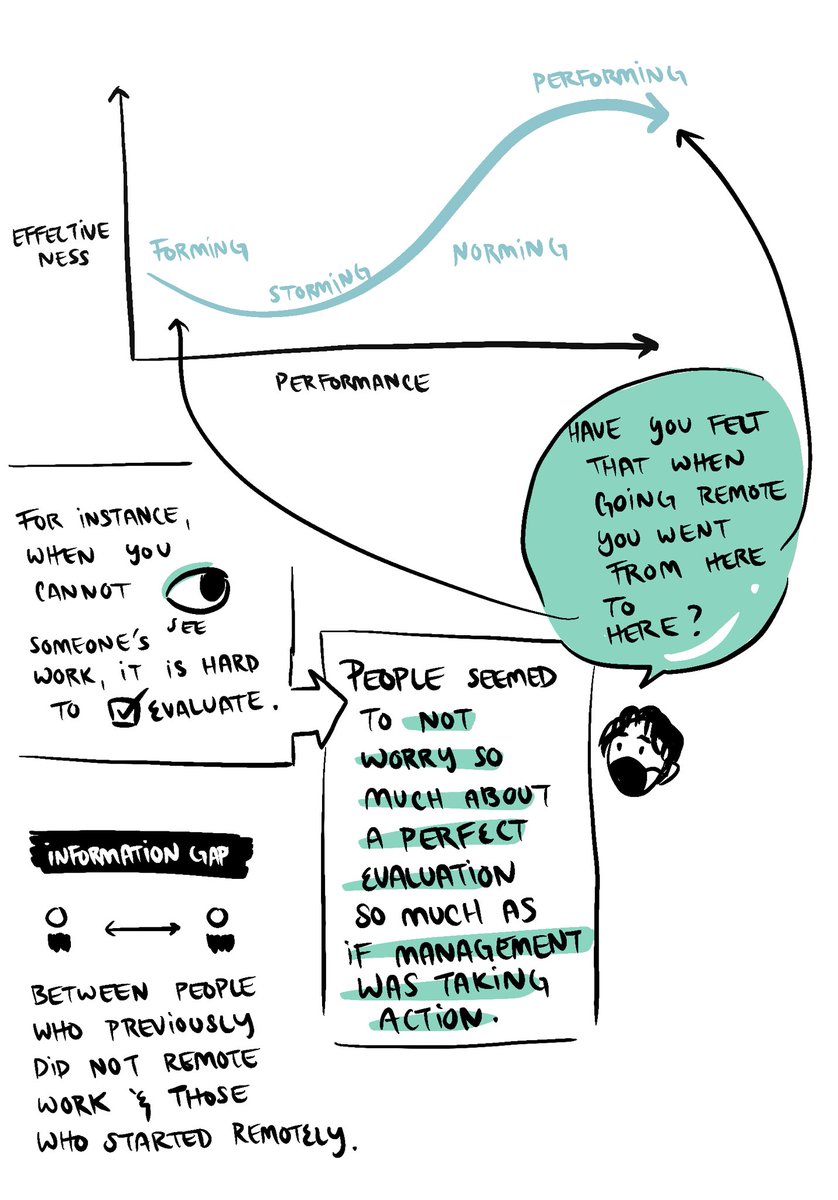 PERFORMING
EFFECTIVE
NESS
FORMING
STORMING
NORMING
PERFORMANCE
HAVE YOU FELT
THAT WHEN
GOING REMOTE
YOU WENT
FROM HERE
TO
HERE?
FOR INSTANCE,
WHEN YOU
CANNOT
SEE
SOMEONE'S
WORK, IT IS HARD
TO EVALUATE.
PEOPLE SEEMED
TO NOT
WORRY SO
MUCH ABOUT
A PERFECT
EVALUATION
SO MUCH AS
IF MANAGEMENT
WAS TAKING
ACTION.
INFORMATION GAP
BETWEEN PEOPLE
WHO PREVIOUSLY
DID NOT REMOTE
WORK & THOSE
WHO STARTED REMOTELY.